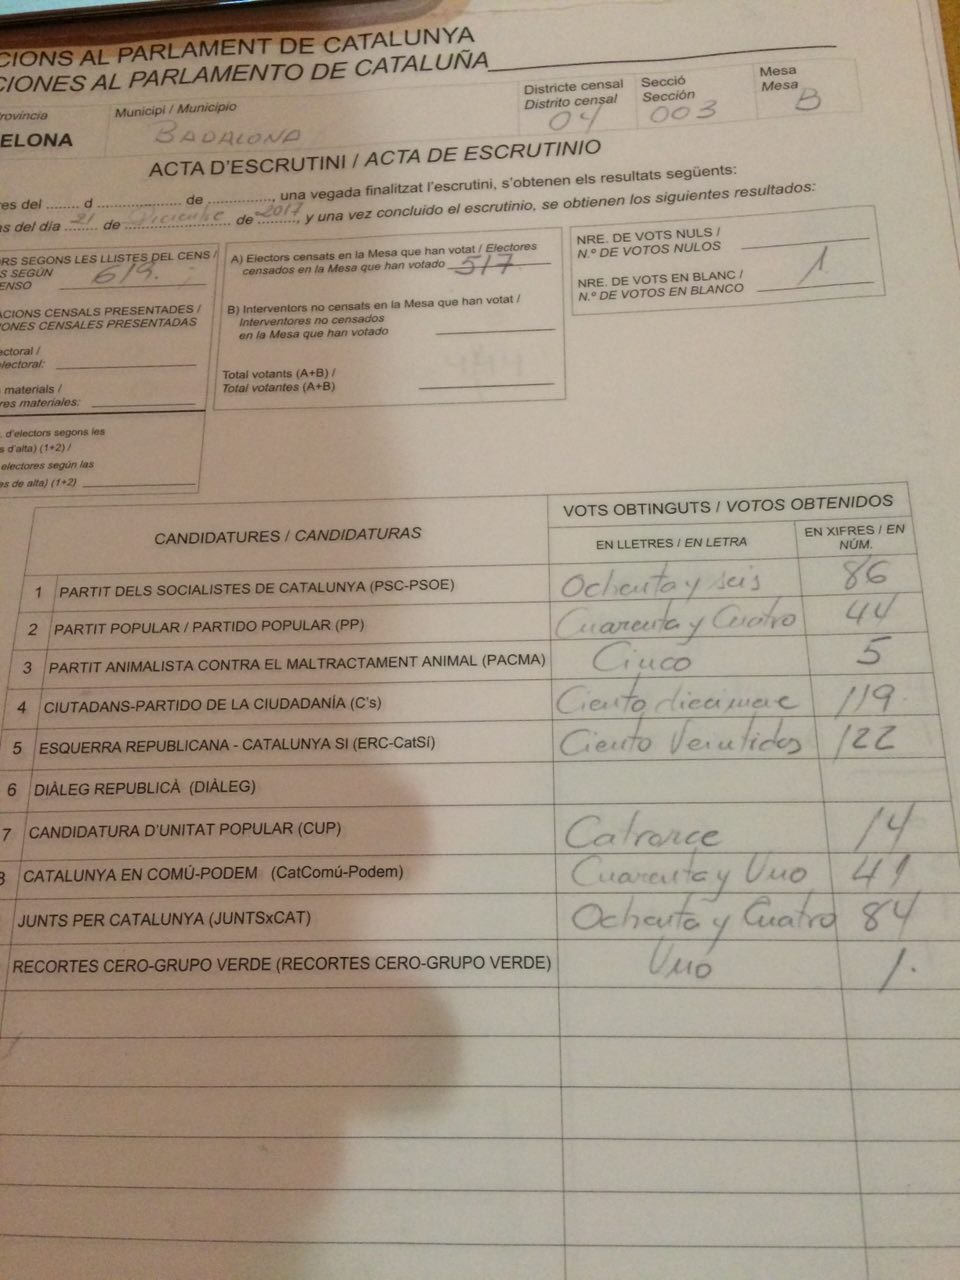 CIONS AL PARLAMENT DE CATALUNYA
CIONES AL PARLAMENTO DE CATALUÑA
rovíncia
ELONA
Municipi / Municipio
BADALONA
Districte censal
Distrito censal
04
Secció
Sección
003
Mesa
Mesa
B
ACTA D'ESCRUTINI / ACTA DE ESCRUTINIO
res del ........ d ..................... de ................, una vegada finalitzat l'escrutini, s'obtenen els resultats següents:
as del día 21 de Diciembre de 2017, y una vez concluido el escrutinio, se obtienen los siguientes resultados:
ORS SEGONS LES LLISTES DEL CENS /
S SEGÚN
ENSO 619.
ACIONS CENSALS PRESENTADES /
IONES CENSALES PRESENTADAS
ectoral /
lectoral:
materials /
res materiales:
. d'electors segons les
s d'alta) (1+2) /
electores según las
es de alta) (1+2)
A) Electors censats en la Mesa que han votat / Electores
censados en la Mesa que han votado 517
B) Interventors no censats en la Mesa que han votat /
Interventores no censados
en la Mesa que han votado
Total votants (A+B) /
Total votantes (A+B)
NRE. DE VOTS NULS /
N.º DE VOTOS NULOS
NRE. DE VOTS EN BLANC /
N.º DE VOTOS EN BLANCO 1
CANDIDATURES / CANDIDATURAS
VOTS OBTINGUTS / VOTOS OBTENIDOS
EN LLETRES / EN LETRA
EN XIFRES / EN
NÚM.
1 PARTIT DELS SOCIALISTES DE CATALUNYA (PSC-PSOE) Ochenta y seis 86
2 PARTIT POPULAR / PARTIDO POPULAR (PP) Cuarenta y Cuatro 44
3 PARTIT ANIMALISTA CONTRA EL MALTRACTAMENT ANIMAL (PACMA) Cinco 5
4 CIUTADANS-PARTIDO DE LA CIUDADANÍA (C's) Ciento diecinueve 119
5 ESQUERRA REPUBLICANA - CATALUNYA SI (ERC-CatSí) Ciento Veintidos 122
6 DIÀLEG REPUBLICÀ (DIÀLEG)
7 CANDIDATURA D'UNITAT POPULAR (CUP) Catrorce 14
8 CATALUNYA EN COMÚ-PODEM (CatComú-Podem) Cuarenta y Uno 41
JUNTS PER CATALUNYA (JUNTSxCAT) Ochenta y Cuatro 84
RECORTES CERO-GRUPO VERDE (RECORTES CERO-GRUPO VERDE) Uno 1.